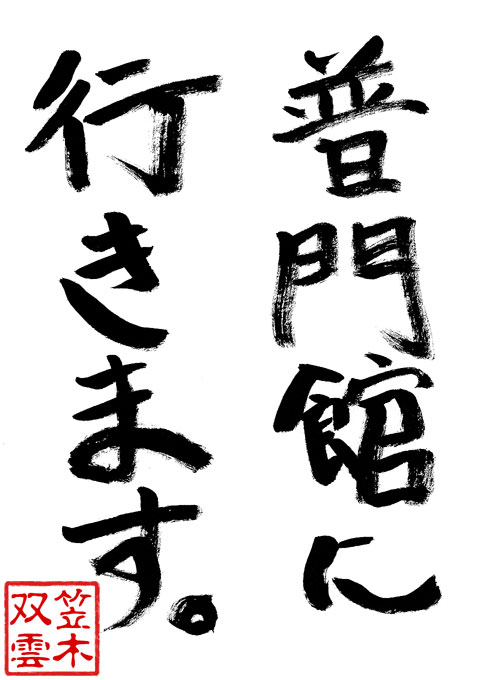 普門館に
行きます。
笠木
双雲